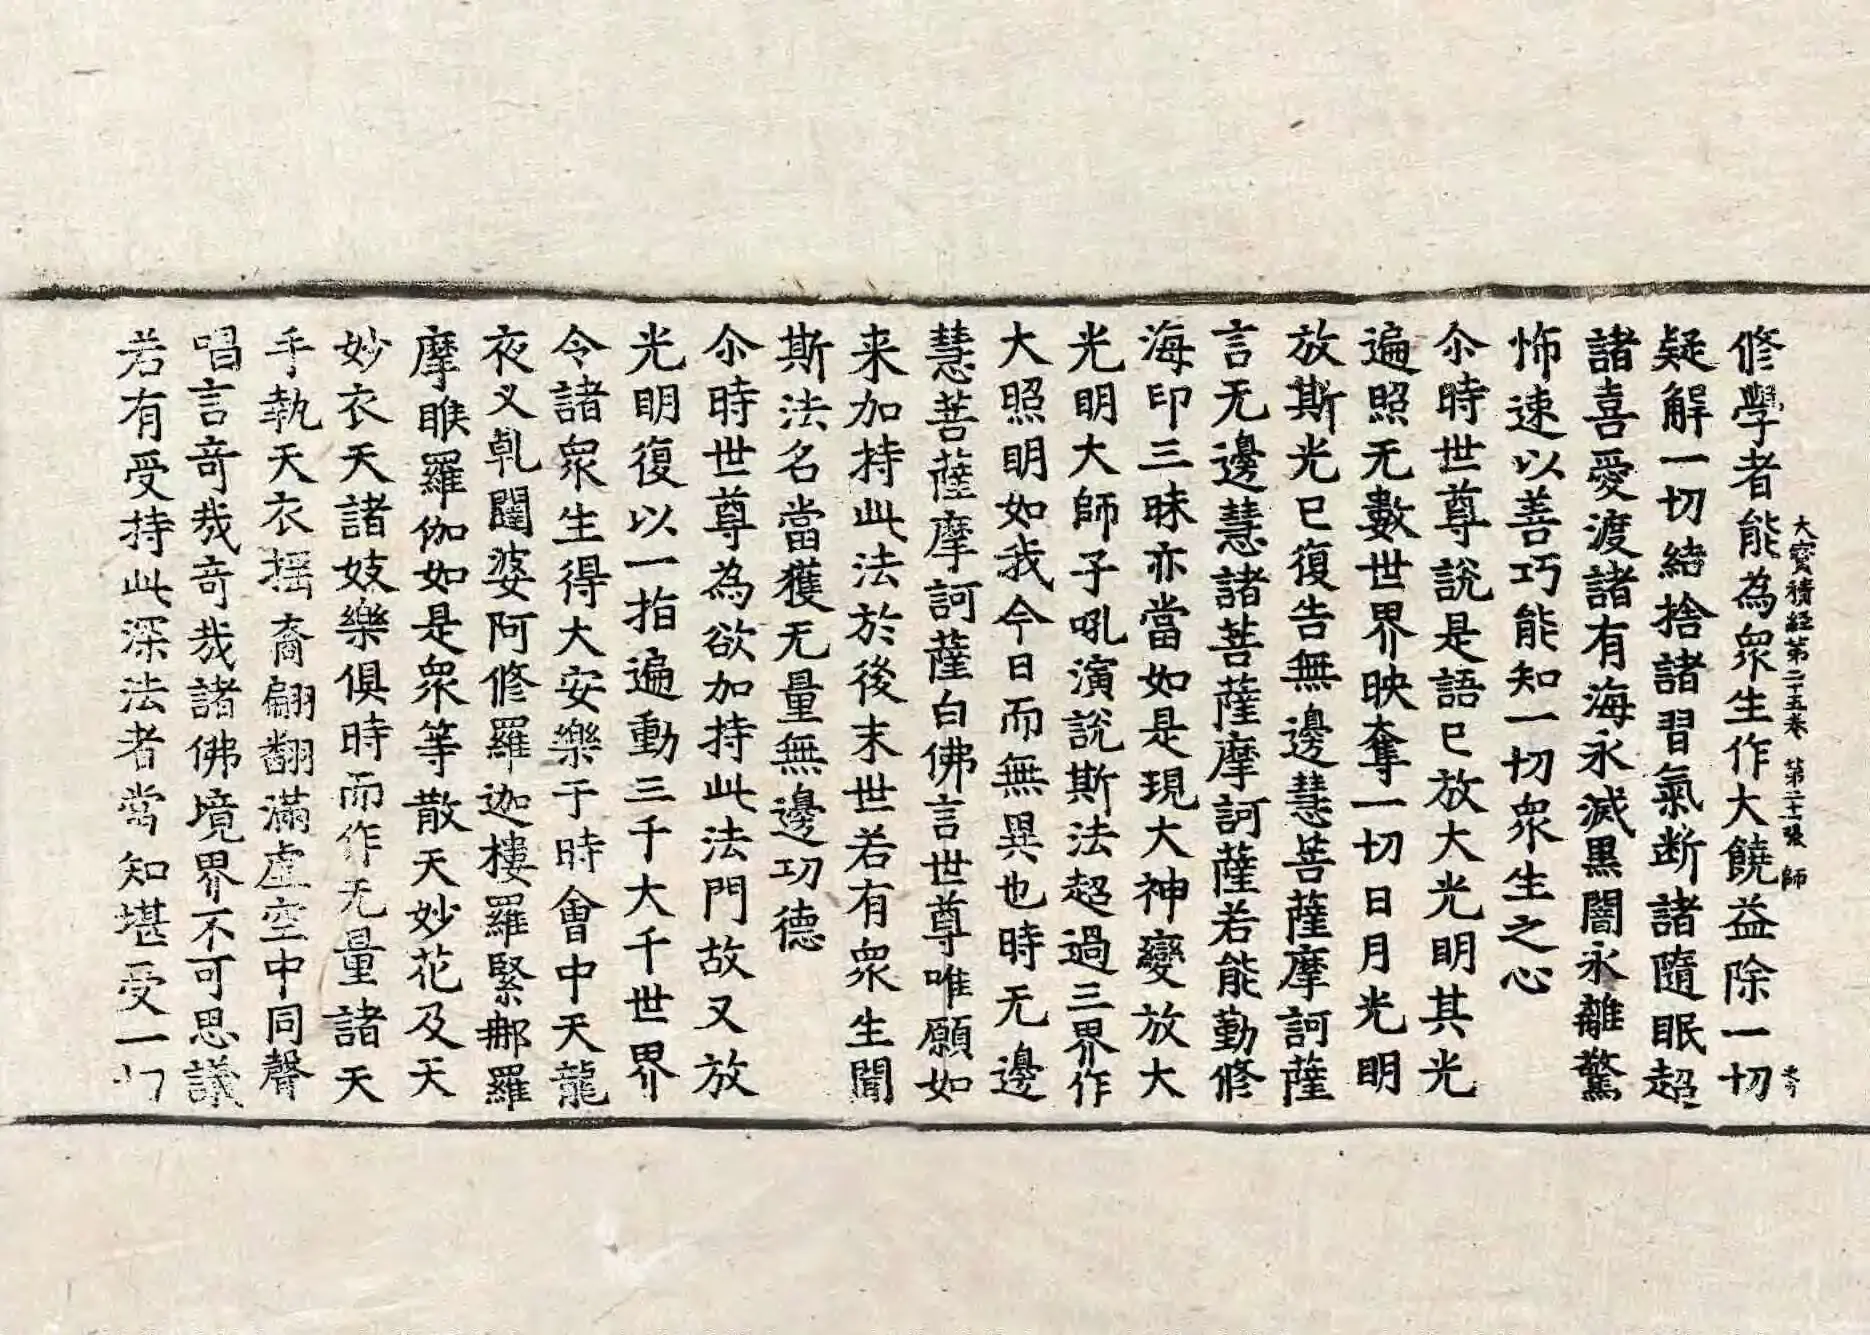 大寶積經第二十五卷 第二十張 師
修學者能為衆生作大饒益除一切
疑解一切結捨諸習氣断諸隨眠超
諸喜愛渡諸有海永滅黒闇永離驚
怖速以善巧能知一切衆生之心
尒時世尊說是語已放大光明其光
遍照无數世界映奪一切日月光明
放斯光已復告無邊慧菩薩摩訶薩
言无邊慧諸菩薩摩訶薩若能勤修
海印三昧亦當如是現大神變放大
光明大師子吼演說斯法超過三界作
大照明如我今日而無異也時无邊
慧菩薩摩訶薩白佛言世尊唯願如
来加持此法於後末世若有衆生聞
斯法名當獲无量無邊功德
尒時世尊為欲加持此法門故又放
光明復以一指遍動三千大千世界
令諸衆生得大安樂于時會中天龍
夜叉乹闥婆阿修羅迦樓羅緊那羅
摩睺羅伽如是衆等散天妙花及天
妙衣天諸妓樂俱時而作无量諸天
手執天衣摇裔翩翻滿虛空中同聲
唱言竒㦲竒㦲諸佛境界不可思議
若有受持此深法者當知堪受一切